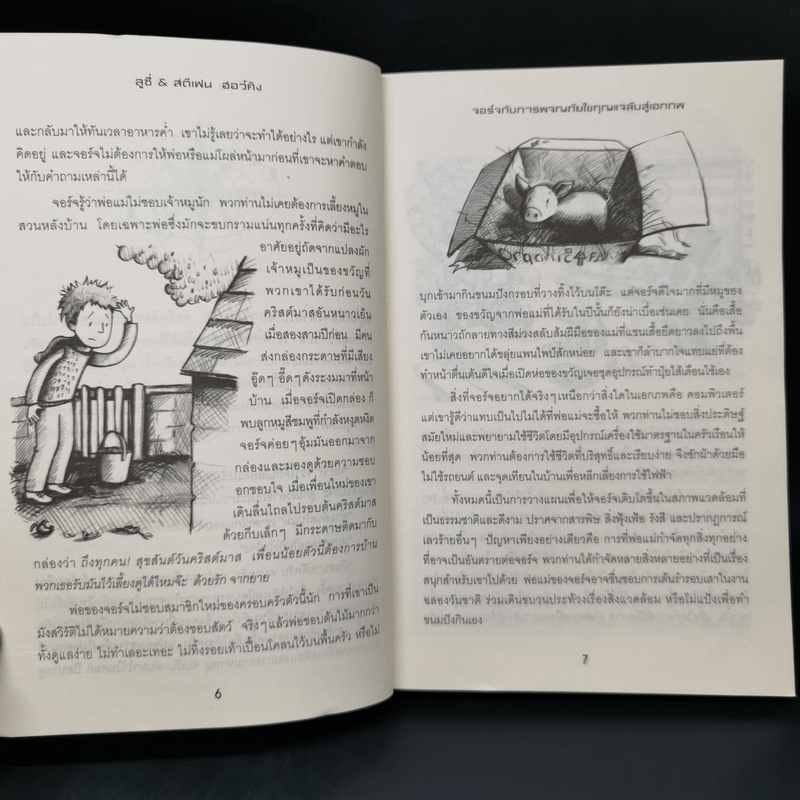 ลูซี่ & สตีเฟน ฮอว์คิง
และกลับมาให้ทันเวลาอาหารค่ำ เขาไม่รู้เลยว่าจะทำได้อย่างไร แต่เขากำลัง
คิดอยู่ และจอร์จไม่ต้องการให้พ่อหรือแม่โผล่หน้ามาก่อนที่เขาจะหาคำตอบ
ให้กับคำถามเหล่านี้ได้
จอร์จรู้ว่าพ่อแม่ไม่ชอบเจ้าหมูนัก พวกท่านไม่เคยต้องการเลี้ยงหมูใน
สวนหลังบ้าน โดยเฉพาะพ่อซึ่งมักจะขบกรามแน่นทุกครั้งที่คิดว่ามีอะไร
อาศัยอยู่ถัดจากแปลงผัก
เจ้าหมูเป็นของขวัญที่
พวกเขาได้รับก่อนวัน
คริสต์มาสอันหนาวเย็น
เมื่อสองสามปีก่อน มีคน
ส่งกล่องกระดาษที่มีเสียง
อู๊ดๆ อี๊ดๆ ดังระงมมาที่หน้า
บ้าน เมื่อจอร์จเปิดกล่อง ก็
พบลูกหมูสีชมพูที่กำลังหงุดหงิด
จอร์จค่อยๆ อุ้มมันออกมาจาก
กล่องและมองดูด้วยความชอบ
อกชอบใจ เมื่อเพื่อนใหม่ของเขา
เดินลื่นไถลไปรอบต้นคริสต์มาส
ด้วยกีบเล็กๆ มีกระดาษติดมากับ
กล่องว่า ถึงทุกคน! สุขสันต์วันคริสต์มาส เพื่อนน้อยตัวนี้ต้องการบ้าน
พวกเธอรับมันไว้เลี้ยงดูได้ไหมจ๊ะ ด้วยรัก จากยาย
พ่อของจอร์จไม่ชอบสมาชิกใหม่ของครอบครัวตัวนี้นัก การที่เขาเป็น
มังสวิรัติไม่ได้หมายความว่าต้องชอบสัตว์ จริงๆ แล้วพ่อชอบต้นไม้มากกว่า
ทั้งดูแลง่าย ไม่ทำเลอะเทอะ ไม่ทิ้งรอยเท้าเปื้อนโคลนไว้บนพื้นครัว หรือไม่
6
จอร์จกับการผจญภัยไขกุญแจลับสู่เอกภพ
Organic
บุกเข้ามากินขนมปังกรอบที่วางทิ้งไว้บนโต๊ะ แต่จอร์จดีใจมากที่มีหมูของ
ตัวเอง ของขวัญจากพ่อแม่ที่ได้รับในปีนั้นก็ยังน่าเบื่อเช่นเคย นั่นคือเสื้อ
กันหนาวถักลายทางสีม่วงสลับส้มฝีมือของแม่ที่แขนเสื้อยืดยาวลงไปถึงพื้น
เขาไม่เคยอยากได้ขลุ่ยแพนไพป์สักหน่อย และเขาก็ลำบากใจแทบแย่ที่ต้อง
ทำหน้าตื่นเต้นดีใจเมื่อเปิดห่อของขวัญเจอชุดอุปกรณ์ทำปุ๋ยไส้เดือนใช้เอง
สิ่งที่จอร์จอยากได้จริงๆ เหนือกว่าสิ่งใดในเอกภพคือ คอมพิวเตอร์
แต่เขารู้ดีว่าแทบเป็นไปไม่ได้ที่พ่อแม่จะซื้อให้ พวกท่านไม่ชอบสิ่งประดิษฐ์
สมัยใหม่และพยายามใช้ชีวิตโดยมีอุปกรณ์เครื่องใช้มาตรฐานในครัวเรือนให้
น้อยที่สุด พวกท่านต้องการใช้ชีวิตที่บริสุทธิ์และเรียบง่าย จึงซักผ้าด้วยมือ
ไม่ใช้รถยนต์ และจุดเทียนในบ้านเพื่อหลีกเลี่ยงการใช้ไฟฟ้า
ทั้งหมดนี้เป็นการวางแผนเพื่อให้จอร์จเติบโตขึ้นในสภาพแวดล้อมที่
เป็นธรรมชาติและดีงาม ปราศจากสารพิษ สิ่งฟุ้งเฟ้อ รังสี และปรากฏการณ์
เลวร้ายอื่นๆ ปัญหาเพียงอย่างเดียวคือ การที่พ่อแม่กำจัดทุกสิ่งทุกอย่าง
ที่อาจเป็นอันตรายต่อจอร์จ พวกท่านได้กำจัดหลายสิ่งหลายอย่างที่เป็นเรื่อง
สนุกสำหรับเขาไปด้วย พ่อแม่ของจอร์จอาจชื่นชอบการเต้นรำรอบเสาในงาน
ฉลองวันชาติ ร่วมเดินขบวนประท้วงเรื่องสิ่งแวดล้อม หรือโม่แป้งเพื่อทำ
ขนมปังกินเอง
7